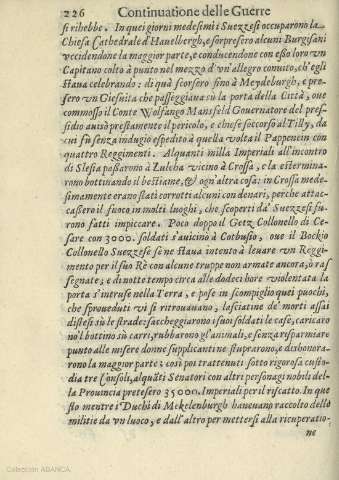 226 Continuatione delle Guerre
si rihebbe. In quei giorni medesimi i Suezzesi occuparono la
Chiesa Cathedrale d'Hauelbergh, e sorpresero alcuni Burgsani
uccidendone la maggior parte, e conducendone con esso loro vn
Capitano colto à punto nel mezzo d'vn'allegro conuito, ch'egli
staua celebrando: di quà scorsero sino à Meydeburgh, e pre-
sero vn Giesuita che passeggiaua sù la porta della Città, oue
commosso il Conte Wolfango Mansfeld Gouernatore del pre-
sidio auisò prestamente il pericolo, e chiese soccorso al Tilly, da
cui fù senza indugio espedito à quella volta il Pappenein con
quattro Reggimenti. Alquanti milla Imperiali all'incontro
di Slesia passarono à Zulcha vicino à Crossa, e la stermina-
rono bottinando il bestiame, & ogn'altra cosa: in Crossa mede-
simamente erano stati corrotti alcuni con denari, perche attac-
cassero il fuoco in molti luoghi, che scoperti da' Suezzesi fu-
rono fatti impiccare. Poco doppo il Getz Collonello di Ce-
sare con 3000. soldati s'auicinò à Cotbusio, oue il Bockio
Collonello Suezzese se ne staua intento à leuare vn Reggi-
mento per il suo Rè con alcune truppe non armate ancora, ò raf
segnate; e di notte tempo circa alle dodeci hore violentata la
porta s'intruse nella Terra, e pose in scompiglio quei puochi,
che sproueduti vi si ritrouauano, lasciatine de' morti assai
distesi sù le strade: saccheggiarono i suoi soldati le case, caricaro
no'l bottino sù carri, rubbarono gl'animali, e senza risparmiare
punto alle misere donne supplicanti ne stuprarono, e dishonora-
rono la maggior parte; così poi trattenuti sotto rigorosa custo-
dia tre Consoli, alquāti Senatori con altri personagi nobili del-
la Prouincia pretesero 35000. Imperiali per il riscatto. In que
sto mentre i Duchi di Mekelenburgh haueuano raccolto della
militie da vn luoco, e dall'altro per mettersi alla ricuperatio-
ne
Colección ABANCA